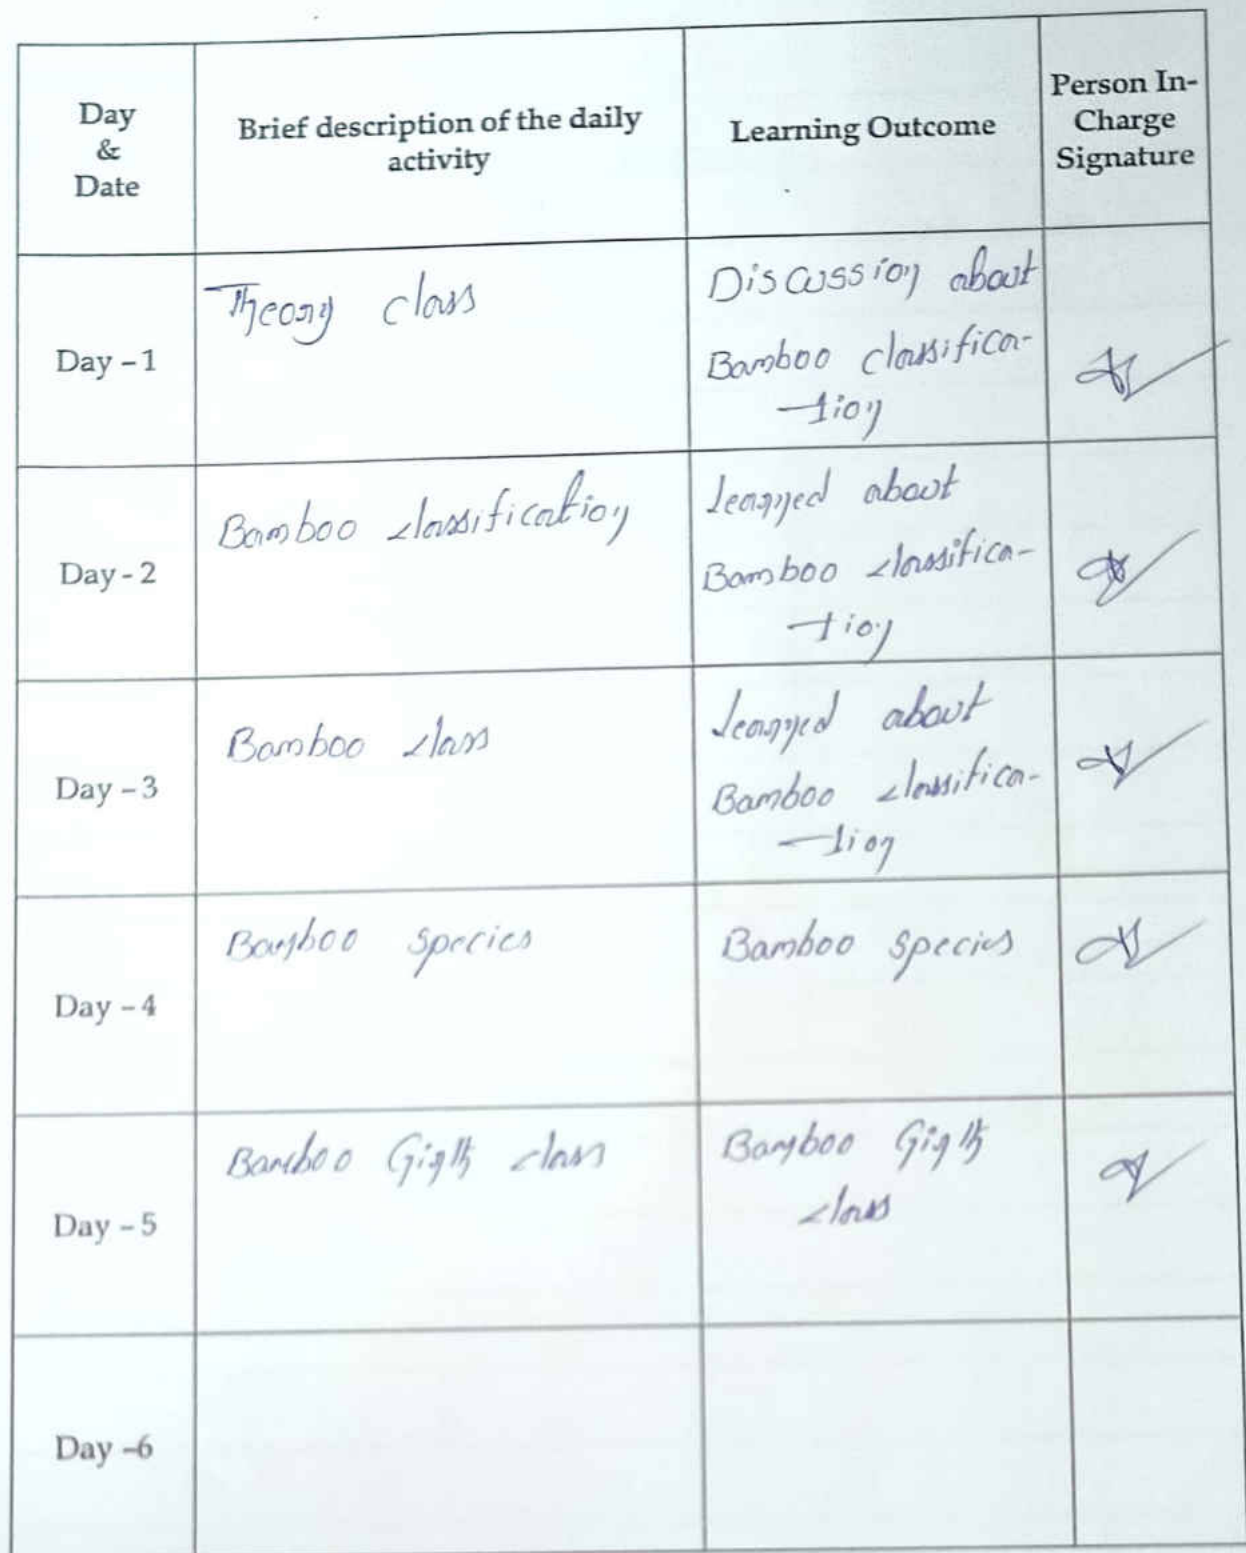 Day
&
Date
Brief description of the daily
activity
Learning Outcome
Person In-
Charge
Signature
Day - 1
Theory class
Discussion about
Bamboo classifica-
-tion
Day - 2
Bamboo classification
Learned about
Bamboo classifica-
-tion
Day - 3
Bamboo class
Learned about
Bamboo classifica-
-tion
Day - 4
Bamboo species
Bamboo species
Day - 5
Bamboo class
Bamboo
class
Day -6